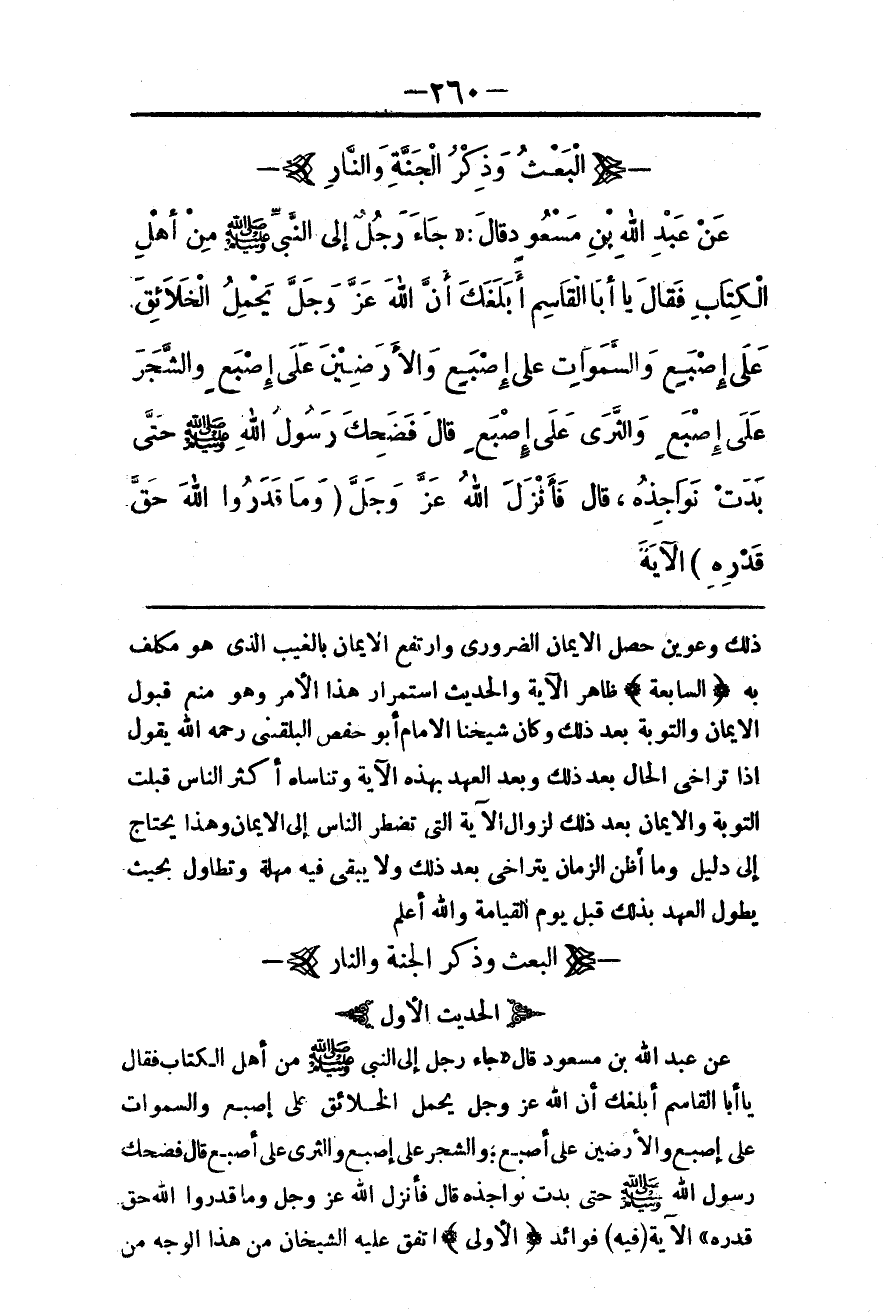 -٢٦٠-
الْبَعْثُ وَذِكْرُ الْجَنَّةِ وَالنَّارِ
عَنْ عَبْدِ اللهِ بْنِ مَسْعُودٍ قالَ: «جَاءَ رَجُلٌ إلى النَّبِيِّ ﷺ مِنْ أَهْلِ
الْكِتَابِ فَقَالَ يا أبَا الْقَاسِمِ أَبَلَغَكَ أَنَّ اللهَ عَزَّ وَجَلَّ يَحْمِلُ الْخَلَائِقَ
عَلَى إِصْبَعٍ وَالسَّمَوَاتِ على إِصْبَعٍ وَالأَرَضِيْنَ عَلَى إِصْبَعٍ والشَّجَرَ
عَلَى إِصْبَعٍ وَالثَّرَى عَلَى إِصْبَعٍ قالَ فَضَحِكَ رَسُولُ اللهِ ﷺ حَتَّى
بَدَتْ نَوَاجِذُهُ، قال فَأَنْزَلَ اللهُ عَزَّ وَجَلَّ (وَمَا قَدَرُوا اللهَ حَقَّ
قَدْرِهِ) الْآيَةَ
ذلك وعوين حصل الايمان الضرورى وارتفع الايمان بالغيب الذى هو مكلف
به ﴿ السابعة ﴾ ظاهر الآية والحديث استمرار هذا الأمر وهو منع قبول
الايمان والتوبة بعد ذلك وكان شيخنا الامام أبو حفص البلقينى رحمه الله يقول
اذا تراخى الحال بعد ذلك وبعد العهد بهذه الآية وتناساه أكثر الناس قبلت
التوبة والايمان بعد ذلك لزوال الآية التى تضطر الناس إلى الايمان وهذا يحتاج
إلى دليل وما أظن الزمان يتراخى بعد ذلك ولا يبقى فيه مهلة وتطاول بحيث
يطول العهد بذلك قبل يوم القيامة والله أعلم
البعث وذكر الجنة والنار
الحديث الأول
عن عبد الله بن مسعود قال «جاء رجل إلى النبي ﷺ من أهل الكتاب فقال
يا أبا القاسم أبلغك أن الله عز وجل يحمل الخلائق على إصبع والسموات
على إصبع والأرضين على أصبع؛ والشجر على إصبع والثرى على أصبع قال فضحك
رسول الله ﷺ حتى بدت نواجذه قال فأنزل الله عز وجل وما قدروا الله حق
قدره» الآية (فيه) فوائد ﴿ الأولى ﴾ اتفق عليه الشيخان من هذا الوجه من